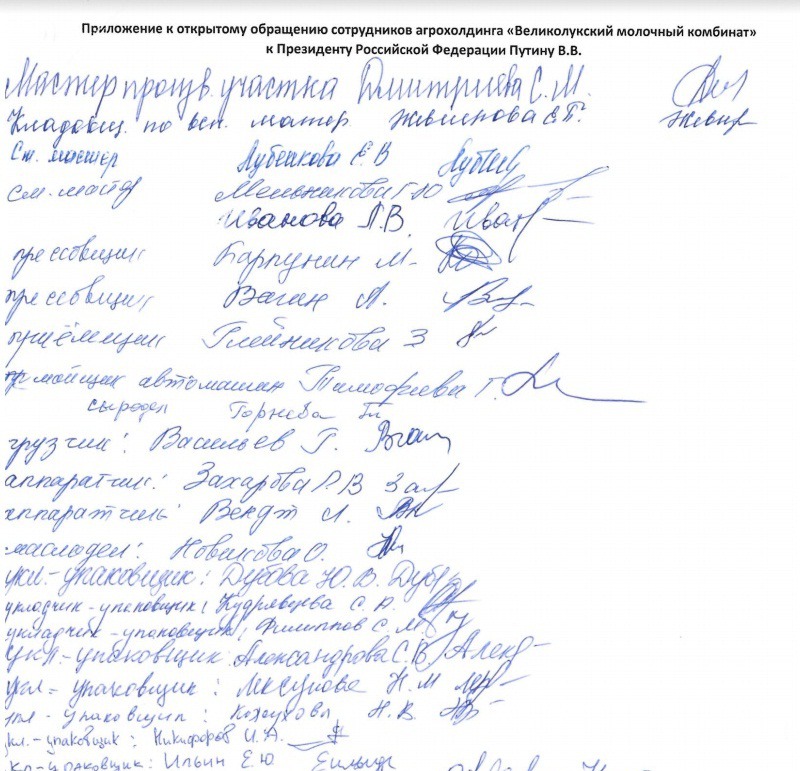 Приложение к открытому обращению сотрудников агрохолдинга «Великолукский молочный комбинат»
к Президенту Российской Федерации Путину В.В.
Мастер произв. участка Дмитриева С.М.
Кладовщ. по всп. матер
Ст. мастер Лубенкова Е В
см. мастер Мельникова Г Ю
Иванова Л.В. Иван
прессовщик Карпунин М.
прессовщик Вагин А.
приёмщик З
мойщик автомашин Тимофеева Г.
сыродел
грузчик: Васильев Г.
аппаратчик: Захарова Р В Зах
аппаратчик: Вендт Л.
маслодел: Новикова О.
укл.-упаковщик: Дубова Ю.В. Дуб
укладчик-упаковщик: Кудрявцева С. А.
укладчик-упаковщик: Филиппов С. М.
укл.-упаковщик Александрова С.В. Алекс
укл.-упаковщик: Н.М
укл.-упаковщик: Н.В.
укл.-упаковщик: Никифоров И.А.
укл-упаковщик: Ильин Е.Ю